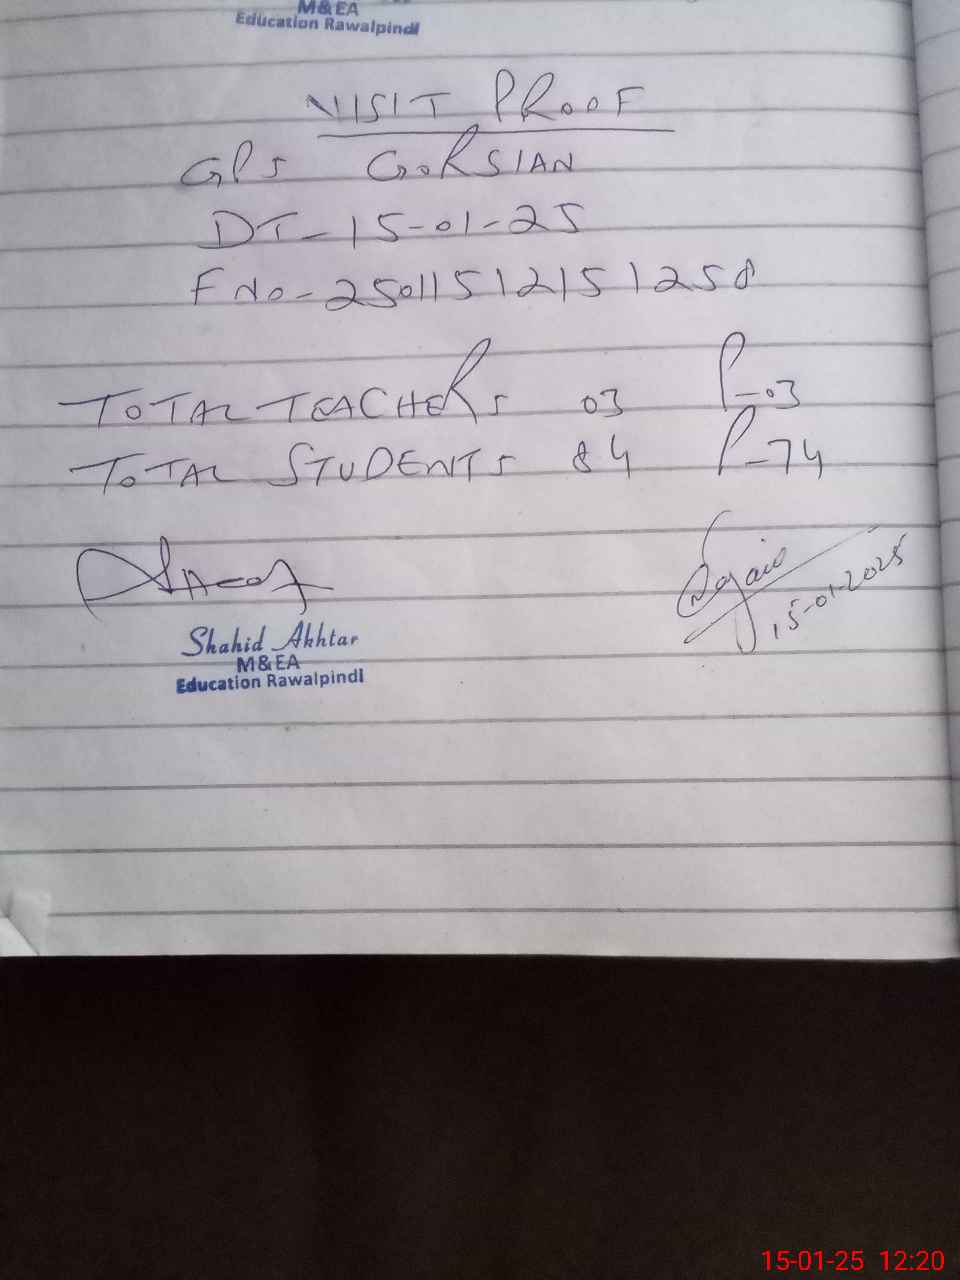 M&EA
Education Rawalpindi
VISIT PROOF
GPS GORSIAN
DT-15-01-25
F No-25011512151258
TOTAL TEACHERS 03 P-03
TOTAL STUDENTS 84 P-74
15-01-2025
Shahid Akhtar
M&EA
Education Rawalpindi
15-01-25 12:20